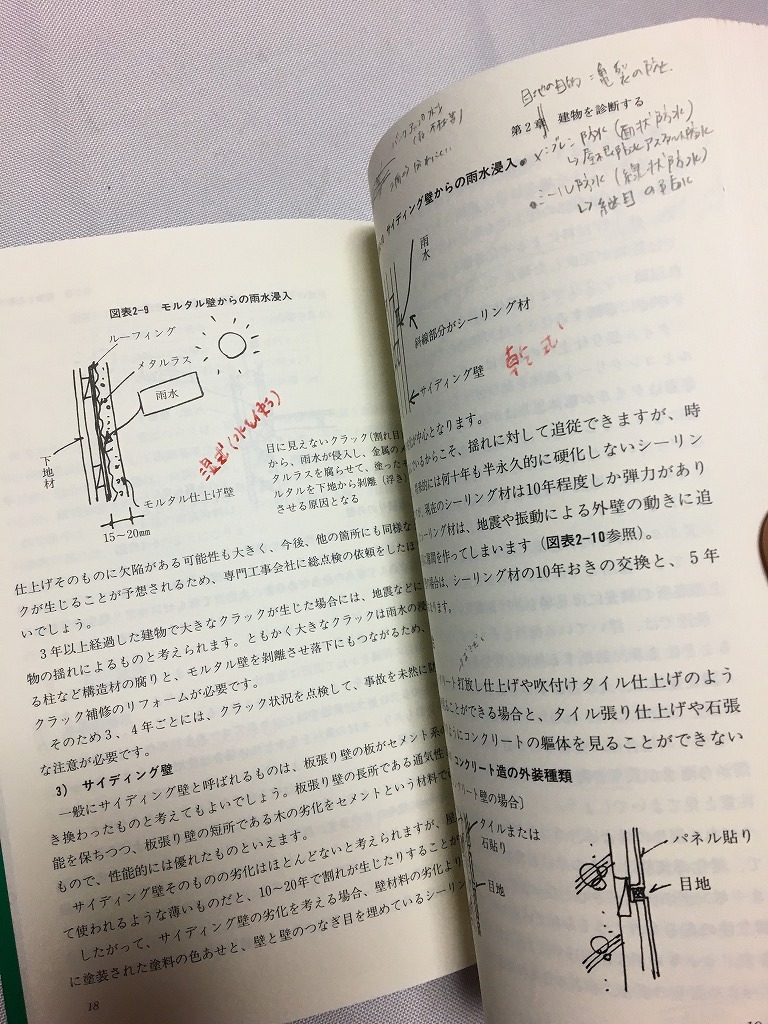 図表2-9 モルタル壁からの雨水浸入
ルーフィング
メタルラス
雨水
下地材
モルタル仕上げ壁
15～20mm
湿式(水を使う)
目に見えないクラック(割れ目
から、雨水が侵入し、金属のメ
タルラスを腐らせて、塗った
ルタルを下地から剥離(浮き
させる原因となる
仕上げそのものに欠陥がある可能性も大きく、今後、他の箇所にも同様な
クが生じることが予想されるため、専門工事会社に総点検の依頼をしたほ
いでしょう。
3年以上経過した建物で大きなクラックが生じた場合には、地震などに
物の揺れによるものと考えられます。ともかく大きなクラックは雨水の浸
る柱など構造材の腐りと、モルタル壁を剥離させ落下にもつながるため、
クラック補修のリフォームが必要です。
そのため3、4年ごとには、クラック状況を点検して、事故を未然に
な注意が必要です。
3) サイディング壁
一般にサイディング壁と呼ばれるものは、板張り壁の板がセメント系の
き換わったものと考えてもよいでしょう。板張り壁の長所である通気性
能を保ちつつ、板張り壁の短所である木の劣化をセメントという材料で
もので、性能的には優れたものといえます。
サイディング壁そのものの劣化はほとんどないと考えられますが、
て使われるような薄いものだと、10～20年で割れが生じたりすることが
したがって、サイディング壁の劣化を考える場合、壁材料の劣化より
に塗装された塗料の色あせと、壁と壁のつなぎ目を埋めているシーリン
18
目地の目的:亀裂の防止
第2章 建物を診断する
メンブレン防水(面状防水)
シール防水(線状防水)
サイディング壁からの雨水浸入
雨水
斜線部分がシーリング材
サイディング壁
乾式
が中心となります。
しているからこそ、揺れに対して追従できますが、時
的には何十年も半永久的に硬化しないシーリン
現在のシーリング材は10年程度しか弾力があり
シーリング材は、地震や振動による外壁の動きに追
原因を作ってしまいます(図表2-10参照)。
場合は、シーリング材の10年おきの交換と、5年
リート打放し仕上げや吹付けタイル仕上げのよう
ることができる場合と、タイル張り仕上げや石張
ようにコンクリートの躯体を見ることができない
コンクリート造の外装種類
クリート壁の場合〕
タイルまたは
石貼り
目地
パネル貼り
目地